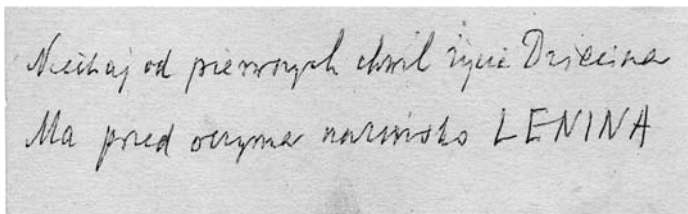 Niechaj od pierwszych chwil życia Dziecina
Ma przed oczyma nazwisko LENINA